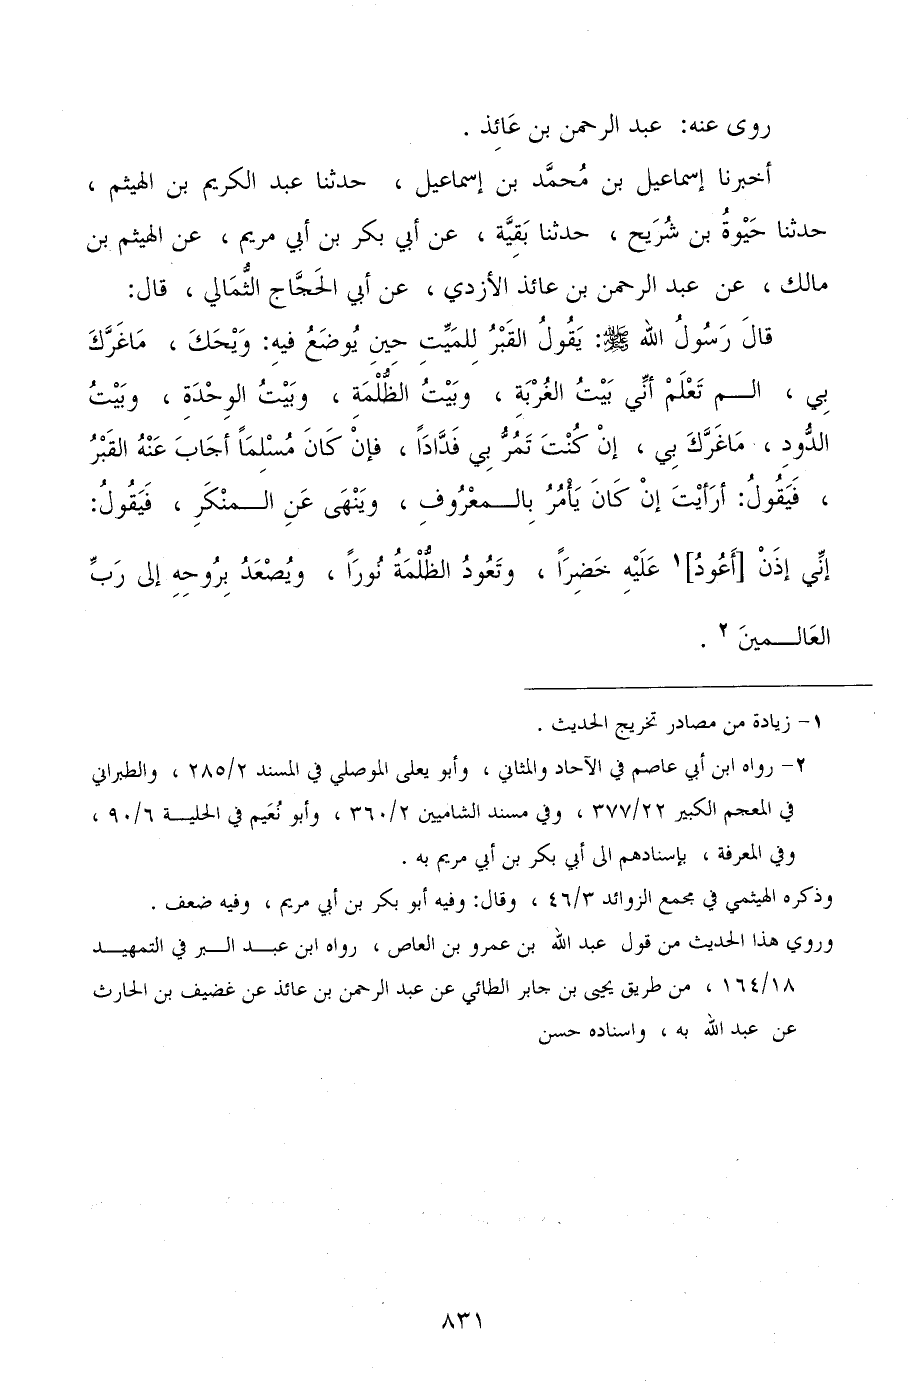 روى عنه: عبد الرحمن بن عَائِذ .
أخبرنا إسماعيل بن مُحمَّد بن إسماعيل ، حدثنا عبد الكريم بن الهيثم ،
حدثنا حَيْوةُ بن شُرَيح ، حدثنا بَقِيَّة ، عن أبي بكر بن أبي مريم ، عن الهيثم بن
مالك ، عن عبد الرحمن بن عائذ الأزدي ، عن أبي الحَجَّاج الثُّمَالي ، قال:
قالَ رَسُولُ الله ﷺ: يَقُولُ القَبْرُ للمَيِّتِ حِينِ يُوضَعُ فيهِ: وَيْحَكَ ، مَاغَرَّكَ
بِي ، الـــم تَعْلَمْ أنِّي بَيْتُ الغُرْبَةِ ، وبَيْتُ الظُّلْمَةِ ، وبَيْتُ الوِحْدَةِ ، وبَيْتُ
الدُّودِ ، مَاغَرَّكَ بِي ، إنْ كُنْتَ تَمُرُّ بِي فَدَّادَاً ، فإنْ كَانَ مُسْلِمَاً أجَابَ عَنْهُ القَبْرُ
، فَيَقُولُ: أرَأيْتَ إنْ كَانَ يَأْمُرُ بالـــمعْرُوفِ ، ويَنْهَى عَنِ الـــمنْكَرِ ، فَيَقُولُ:
إنِّي إذَنْ [أَعُودُ]١ عَلَيْهِ خَضِرَاً ، وتَعُودُ الظُّلْمَةُ نُورَاً ، ويُصْعَدُ بِرُوحِهِ إلى رَبِّ
العَالـــمينَ ٢ .
١- زيادة من مصادر تخريج الحديث .
٢- رواه ابن أبي عاصم في الآحاد والمثاني ، وأبو يعلى الموصلي في المسند ٢٨٥/٢ ، والطبراني
في المعجم الكبير ٣٧٧/٢٢ ، وفي مسند الشاميين ٣٦٠/٢ ، وأبو نُعَيم في الحليـــة ٩٠/٦ ،
وفي المعرفة ، بإسنادهم الى أبي بكر بن أبي مريم به .
وذكره الهيثمي في مجمع الزوائد ٤٦/٣ ، وقال: وفيه أبو بكر بن أبي مريم ، وفيه ضعف .
وروي هذا الحديث من قول عبد الله بن عمرو بن العاص ، رواه ابن عبـــد الـــبر في التمهيـــد
١٦٤/١٨ ، من طريق يحيى بن جابر الطائي عن عبد الرحمن بن عائذ عن غضيف بن الحارث
عن عبد الله به ، واسناده حسن
٨٣١